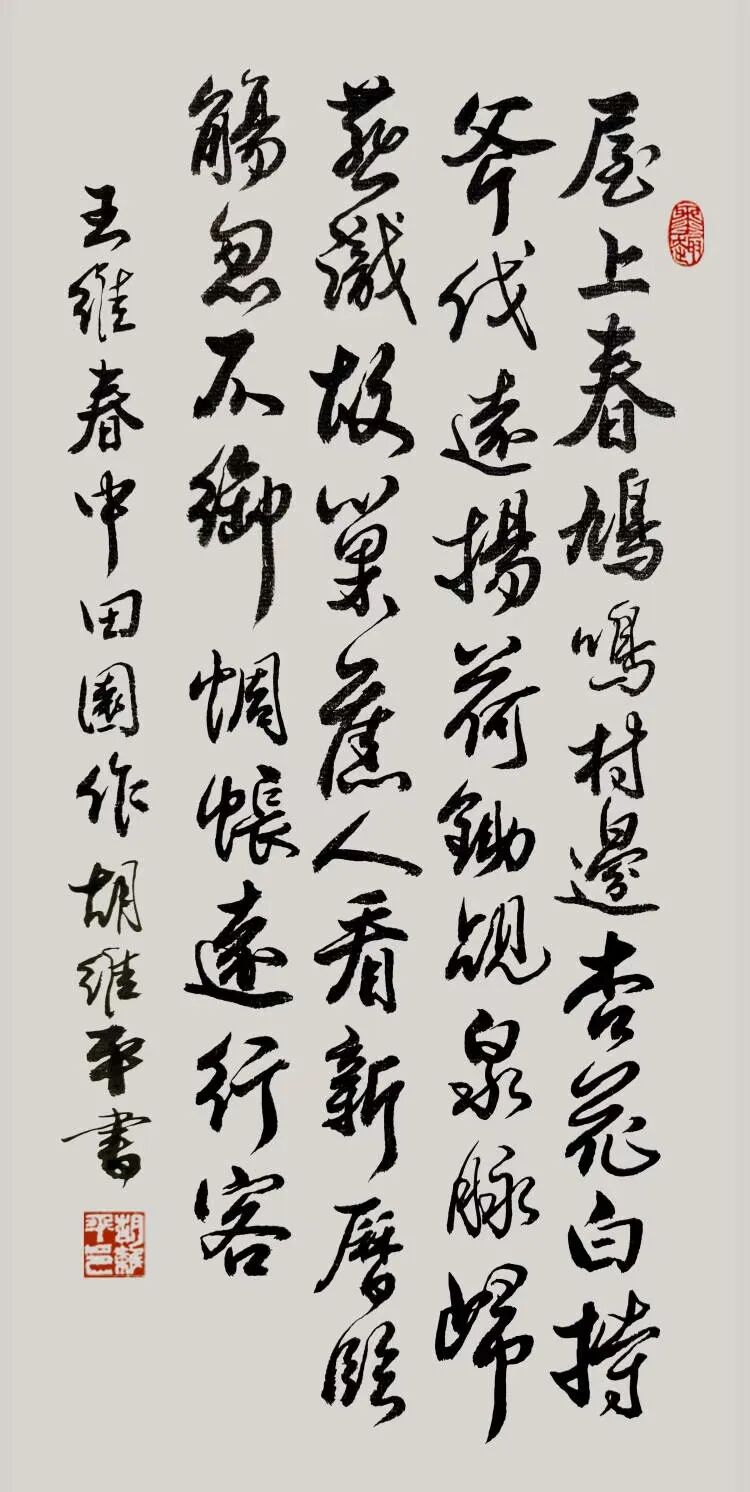 屋上春鳩鳴村邊杏花白持
斧伐遠揚荷鋤覘泉脉歸
燕識故巢舊人看新曆臨
觴忽不御惆悵遠行客
王維春中田園作胡維平書
胡維平印